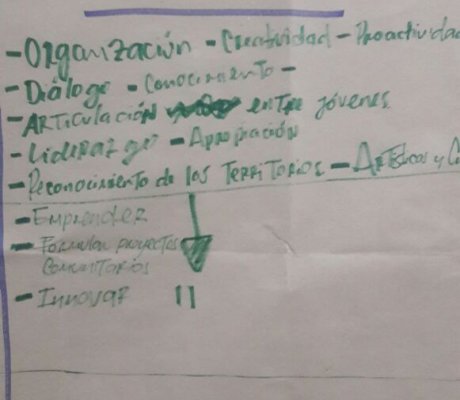 - Organización - Creatividad - Proactividad
- Diálogo - Conocimiento -
- Articulación entre jóvenes
- Liderazgo - Apropiación
- Reconocimiento de los Territorios - Artísticos y C
- Emprender
- Formular proyectos
Comunitarios
- Innovar